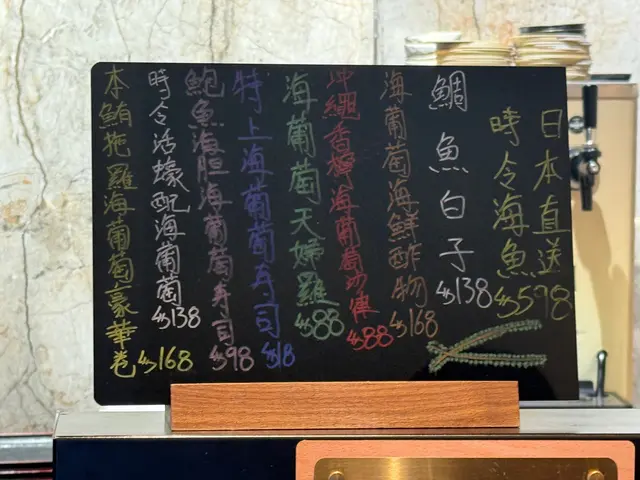 日本直送
時令海魚$598
鯛魚白子$138
海葡萄海鮮酢物$168
沖繩香檸海葡萄 $88
海葡萄天婦羅$88
特上海葡萄寿司
鮑魚海胆海葡萄寿司$98
時令活蠔配海葡萄$138
本鮪拖羅海葡萄豪華卷$168